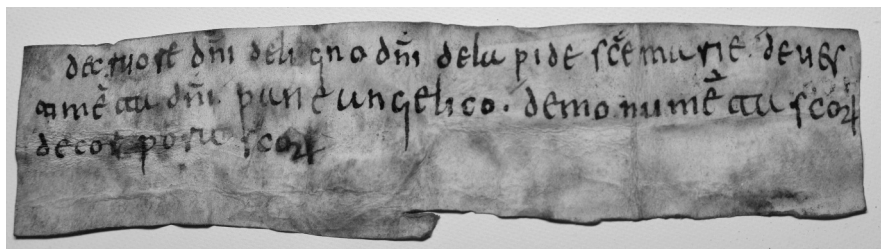 decruore dñi deligno dñi delapide sc̃e marie. deves
timẽta dñi. pane angelico. demonumẽta scoꝝ
decorpora scoꝝ